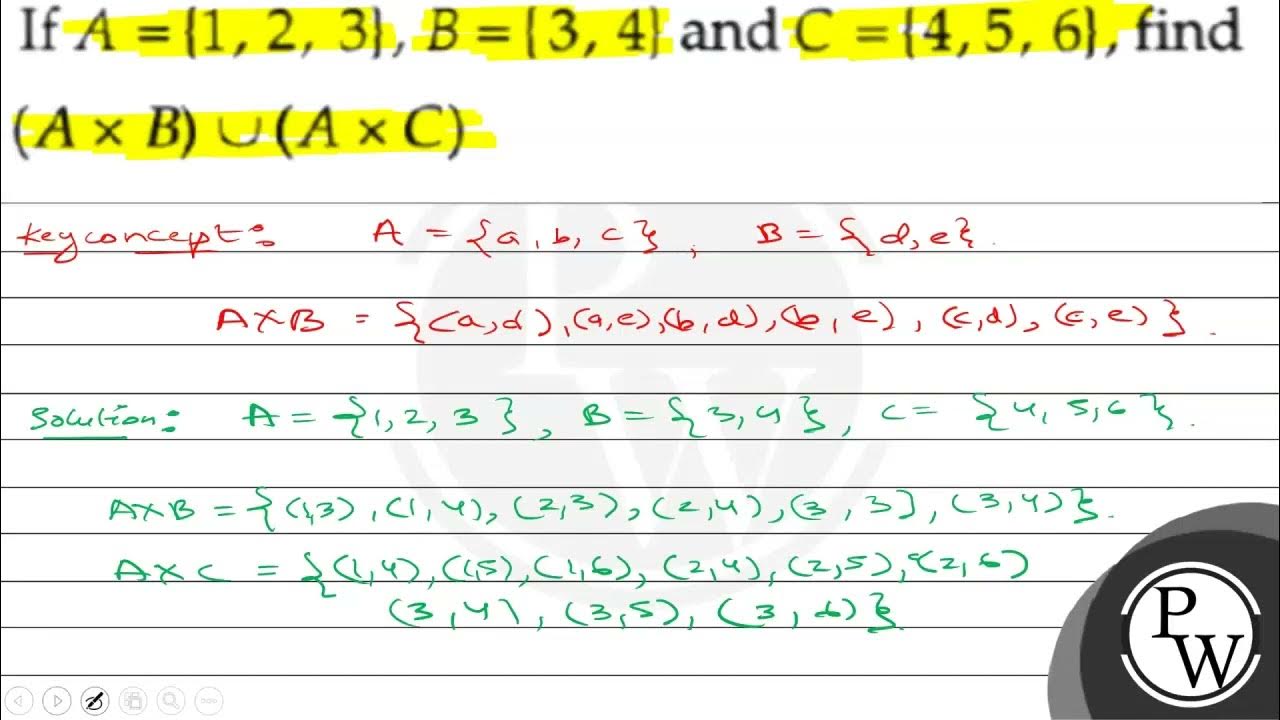 If A = {1, 2, 3}, B = {3, 4} and C = {4, 5, 6}, find
(A × B) ∪ (A × C)
key concept:- A = {a, b, c}, B = {d, e}.
A×B = {(a,d), (a,e), (b,d), (b,e), (c,d), (c,e)}.
Solution:- A = {1, 2, 3}, B = {3, 4}, C = {4, 5, 6}.
A×B = {(1,3), (1,4), (2,3), (2,4), (3,3], (3,4)}.
A×C = {(1,4), (1,5), (1,6), (2,4), (2,5), (2,6)
(3,4), (3,5), (3,6)}.
PW
PW